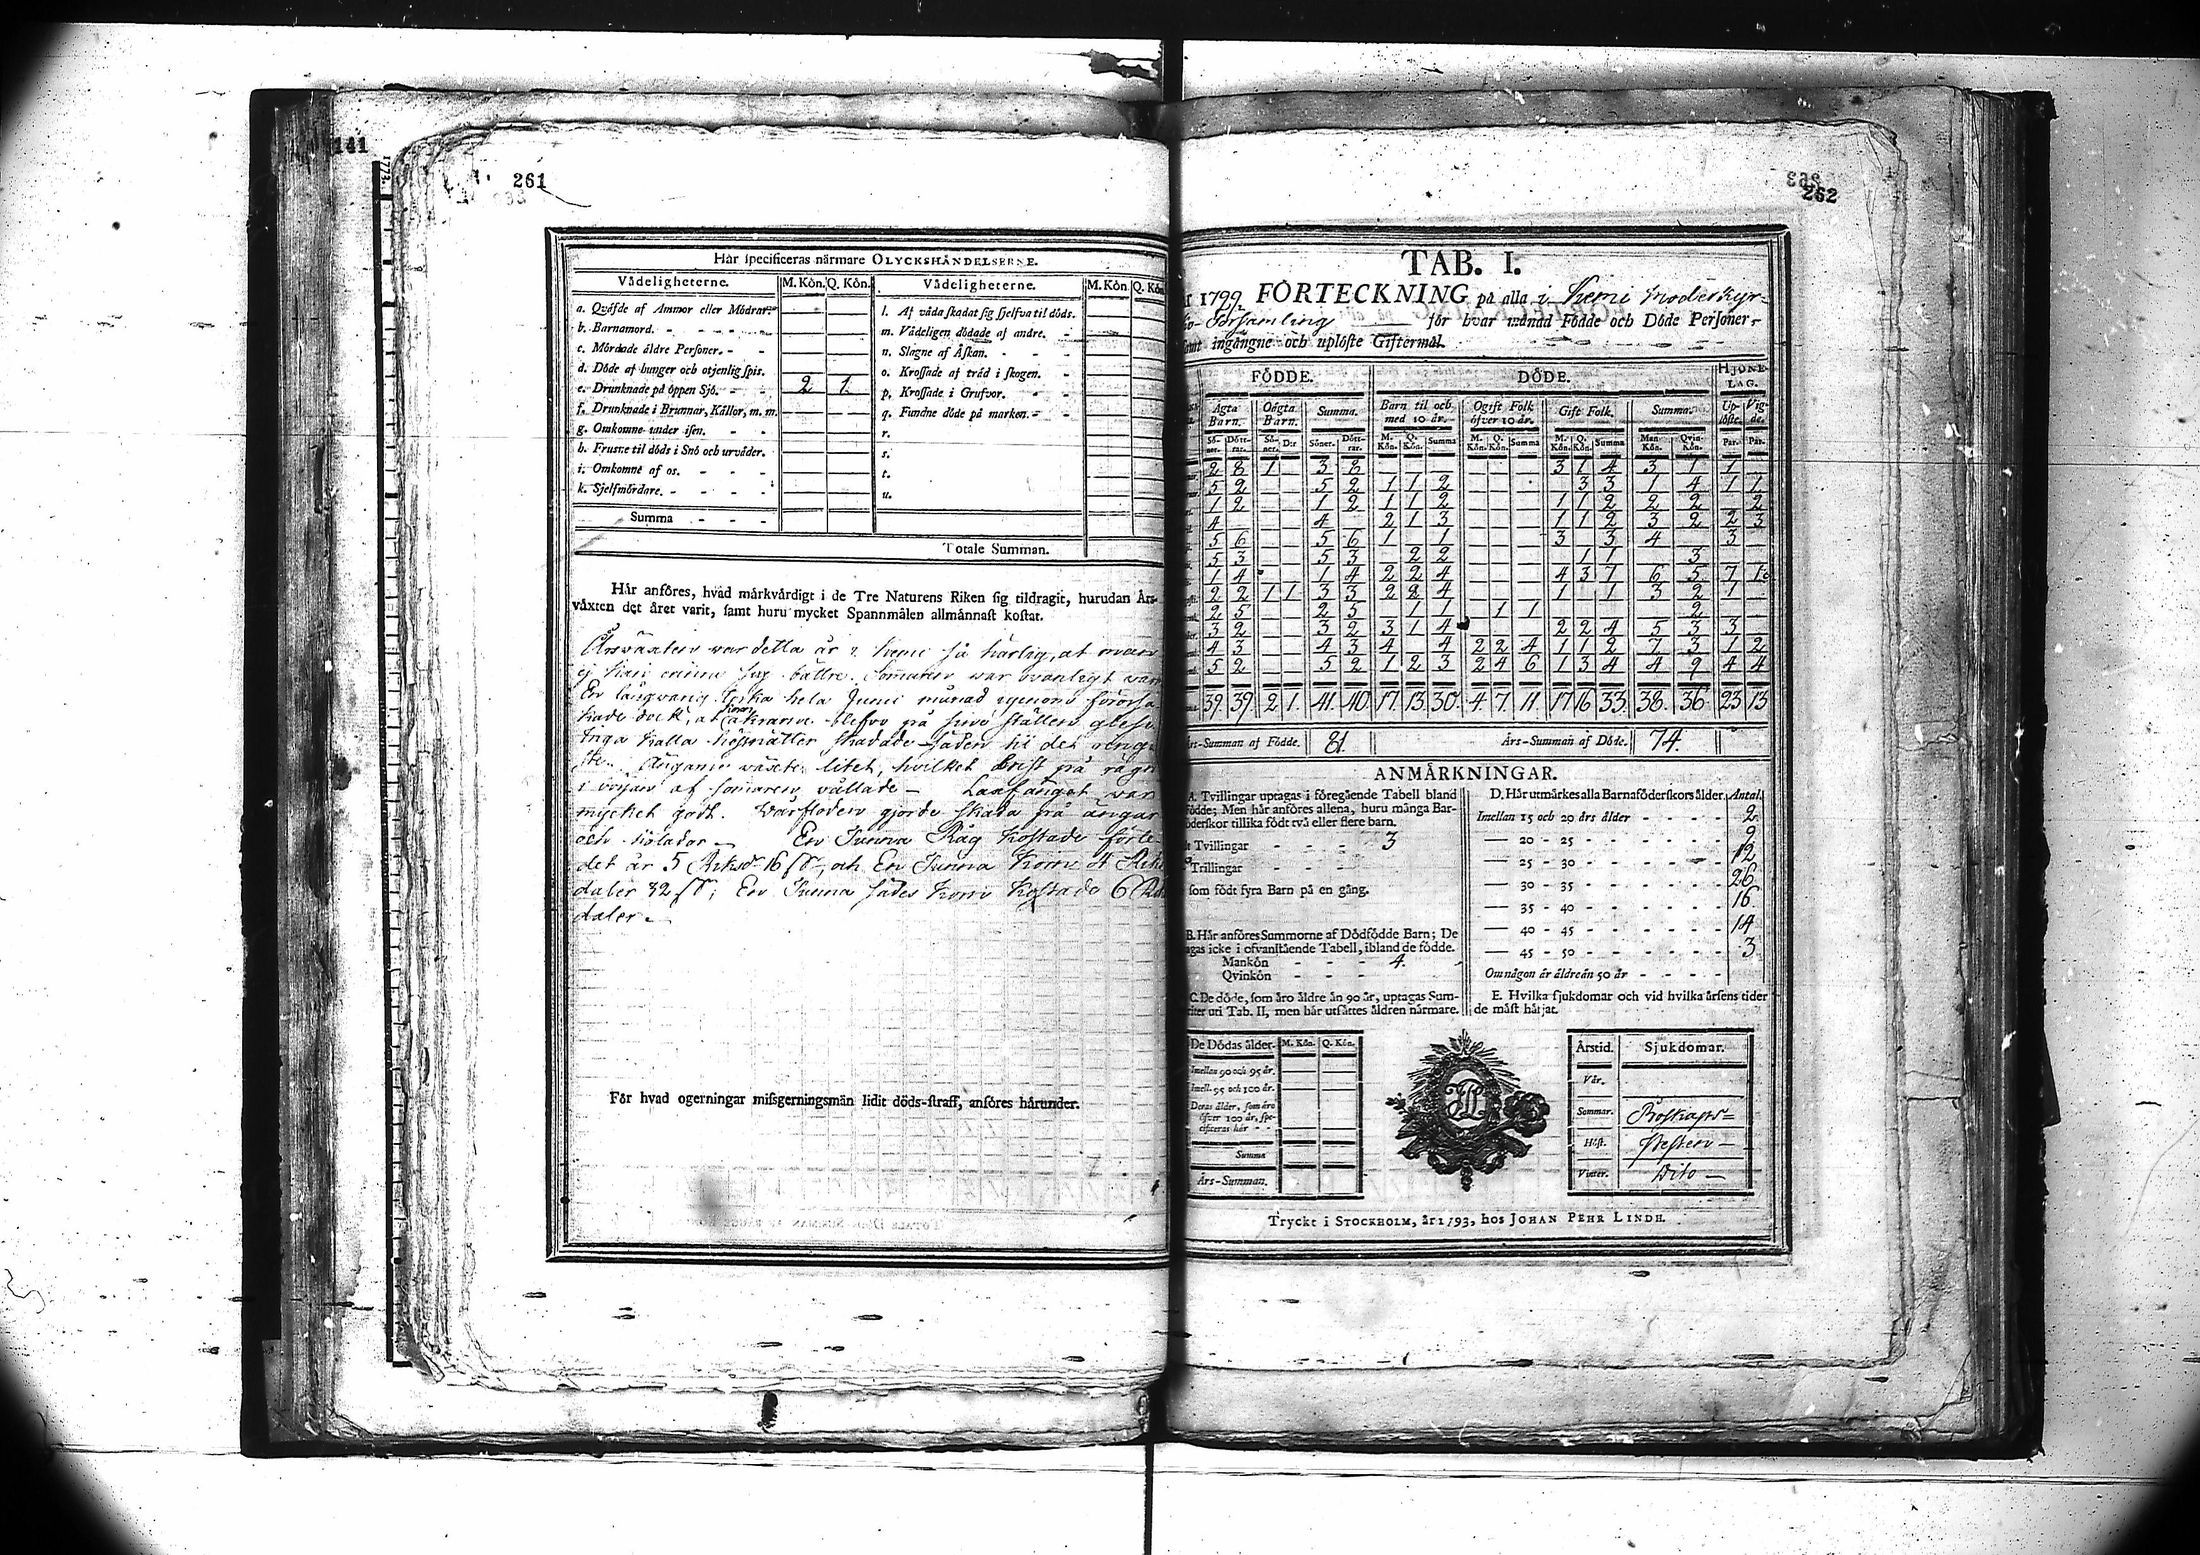 141
261
Här specificeras närmare OLYCKSHÄNDELSERNE.
Vådeligheterne. M. Kön. Q. Kön. Vådeligheterne. M. Kön. Q. Kön
a. Qväfde af Ammor eller Mödrar
b. Barnamord. - - - -
c. Mördade äldre Personer. - -
d. Döde af hunger och otjenlig spis.
e. Drunknade på öppen Sjö. - - 2 1.
f. Drunknade i Brunnar, Källor, m. m.
g. Omkomne under isen. - -
h. Frusne til döds i Snö och urväder.
i. Omkomne af os. - - -
k. Sjelfmördare. - - - -
Summa - - -
l. Af våda skadat sig sjelfva til döds.
m. Vådeligen dödade af andre. -
n. Slagne af Åskan. - - -
o. Krossade af träd i skogen. -
p. Krossade i Grufvor. - -
q. Fundne döde på marken. - -
r.
s.
t.
u.
Totale Summan.
Här anföres, hvad märkvärdigt i de Tre Naturens Riken sig tildragit, hurudan Års-
växten det året varit, samt huru mycket Spannmålen allmännast kostat.
Årsväxten war detta år i Kemi så härlig, at man
ej kan minna sig bättre. Sommaren war ovanligt warm
En långvarig torka hela Junii månad igenom förorsa
kade dock, at kornåkrarne blefvo på sina ställen glesa
Inga kalla höstnätter skadade säden til det ringa
ste. Ängarne wäxte litet, hvilket brist på rägn
i början af sommaren vållade - Laxfånget war
mycket godt. Wårfloden gjorde skada på ängar
och hölador - En Tunna Råg kostade förle-
det år 5 Riksd 16 ß, och En Tunna Korn 4 Riks
daler 32 ß; En Tunna Sädes Korn kostade 6 Riks
daler.
För hvad ogerningar missgerningsmän lidit döds-straff, anföres härunder.
262
TAB. I.
År 1799 FÖRTECKNING på alla i Kemi Moderkyr-
ko-Församling för hvar månad Födde och Döde Personer,
samt ingångne och uplöste Giftermål.
FÖDDE. DÖDE. HJONE-LAG.
Ägta Barn. Oägta Barn. Summa. Barn til och med 10 år. Ogift Folk öfver 10 år. Gift Folk. Summa. Up-löste. Vig-de.
Sö-ner. Dött-rar. Sö-ner. D:r Söner. Dött-rar. M. Kön. Q. Kön. Summa M. Kön. Q. Kön. Summa M. Kön. Q. Kön. Summa Man-Kön. Qvin-Kön. Par. Par.
2 8 1 3 8 3 1 4 3 1 1
5 2 5 2 1 1 2 3 3 1 4 1 1
1 2 1 2 1 1 2 1 1 2 2 2 2
4 4 2 1 3 1 1 2 3 2 2 3
5 6 5 6 1 1 3 3 4 3
5 3 5 3 2 2 1 1 3
1 4 1 4 2 2 4 4 3 7 6 5 7
2 2 1 1 3 3 2 2 4 1 1 3 2 1
2 5 2 5 1 1 1 1 2
3 2 3 2 3 1 4 2 2 4 5 3 3
4 3 4 3 4 4 2 2 4 1 1 2 7 3 1 2
5 2 5 2 1 2 3 2 4 6 1 3 4 4 9 4 4
39 39 2 1 41 40 17 13 30 4 7 11 17 16 33 38 36 23 13
Års-Summan af Födde. 81. Års-Summan af Döde. 74.
ANMÄRKNINGAR.
A. Tvillingar uptagas i föregående Tabell bland
födde; Men här anföres allena, huru många Bar-
nöderskor tillika födt två eller flere barn.
Tvillingar - - - - 3
Trillingar - - -
som födt fyra Barn på en gång.
B. Här anföres Summorne af Dödfödde Barn; De
tagas icke i ofvanstående Tabell, ibland de födde.
Mankön - - - 4.
Qvinkön - - -
C. De döde, som äro äldre än 90 år, uptagas Sum-
uti Tab. II, men här utsättes åldren närmare.
D. Här utmärkes alla Barnaföderskors ålder. Antal.
Imellan 15 och 20 års ålder - - - - 2
— 20 - 25 - - - - - - 9
— 25 - 30 - - - - - - 12
— 30 - 35 - - - - - - 26
— 35 - 40 - - - - - - 16
— 40 - 45 - - - - - - 14
— 45 - 50 - - - - - - 3
Om någon är äldre än 50 år - - - - -
E. Hvilka sjukdomar och vid hvilka årsens tider
de mäst härjat.
De Dödas ålder. M. Kön. Q. Kön.
Imellan 90 och 95 år.
Imell. 95 och 100 år.
Deras ålder, som äro
öfver 100 år, spe-
cificeras här - -
Summa
Års-Summan.
Årstid. Sjukdomar.
Vår.
Sommar. Rötkaps=
Höst. febern -
Vinter. Dito -
Tryckt i STOCKHOLM, år 1793, hos JOHAN PEHR LINDH.